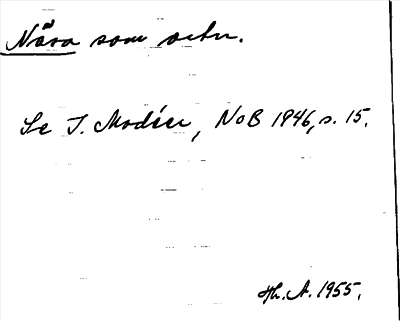 Nåra som ortn.
Se I. Modéer, NoB 1946, s. 15.
Hh. A. 1955.